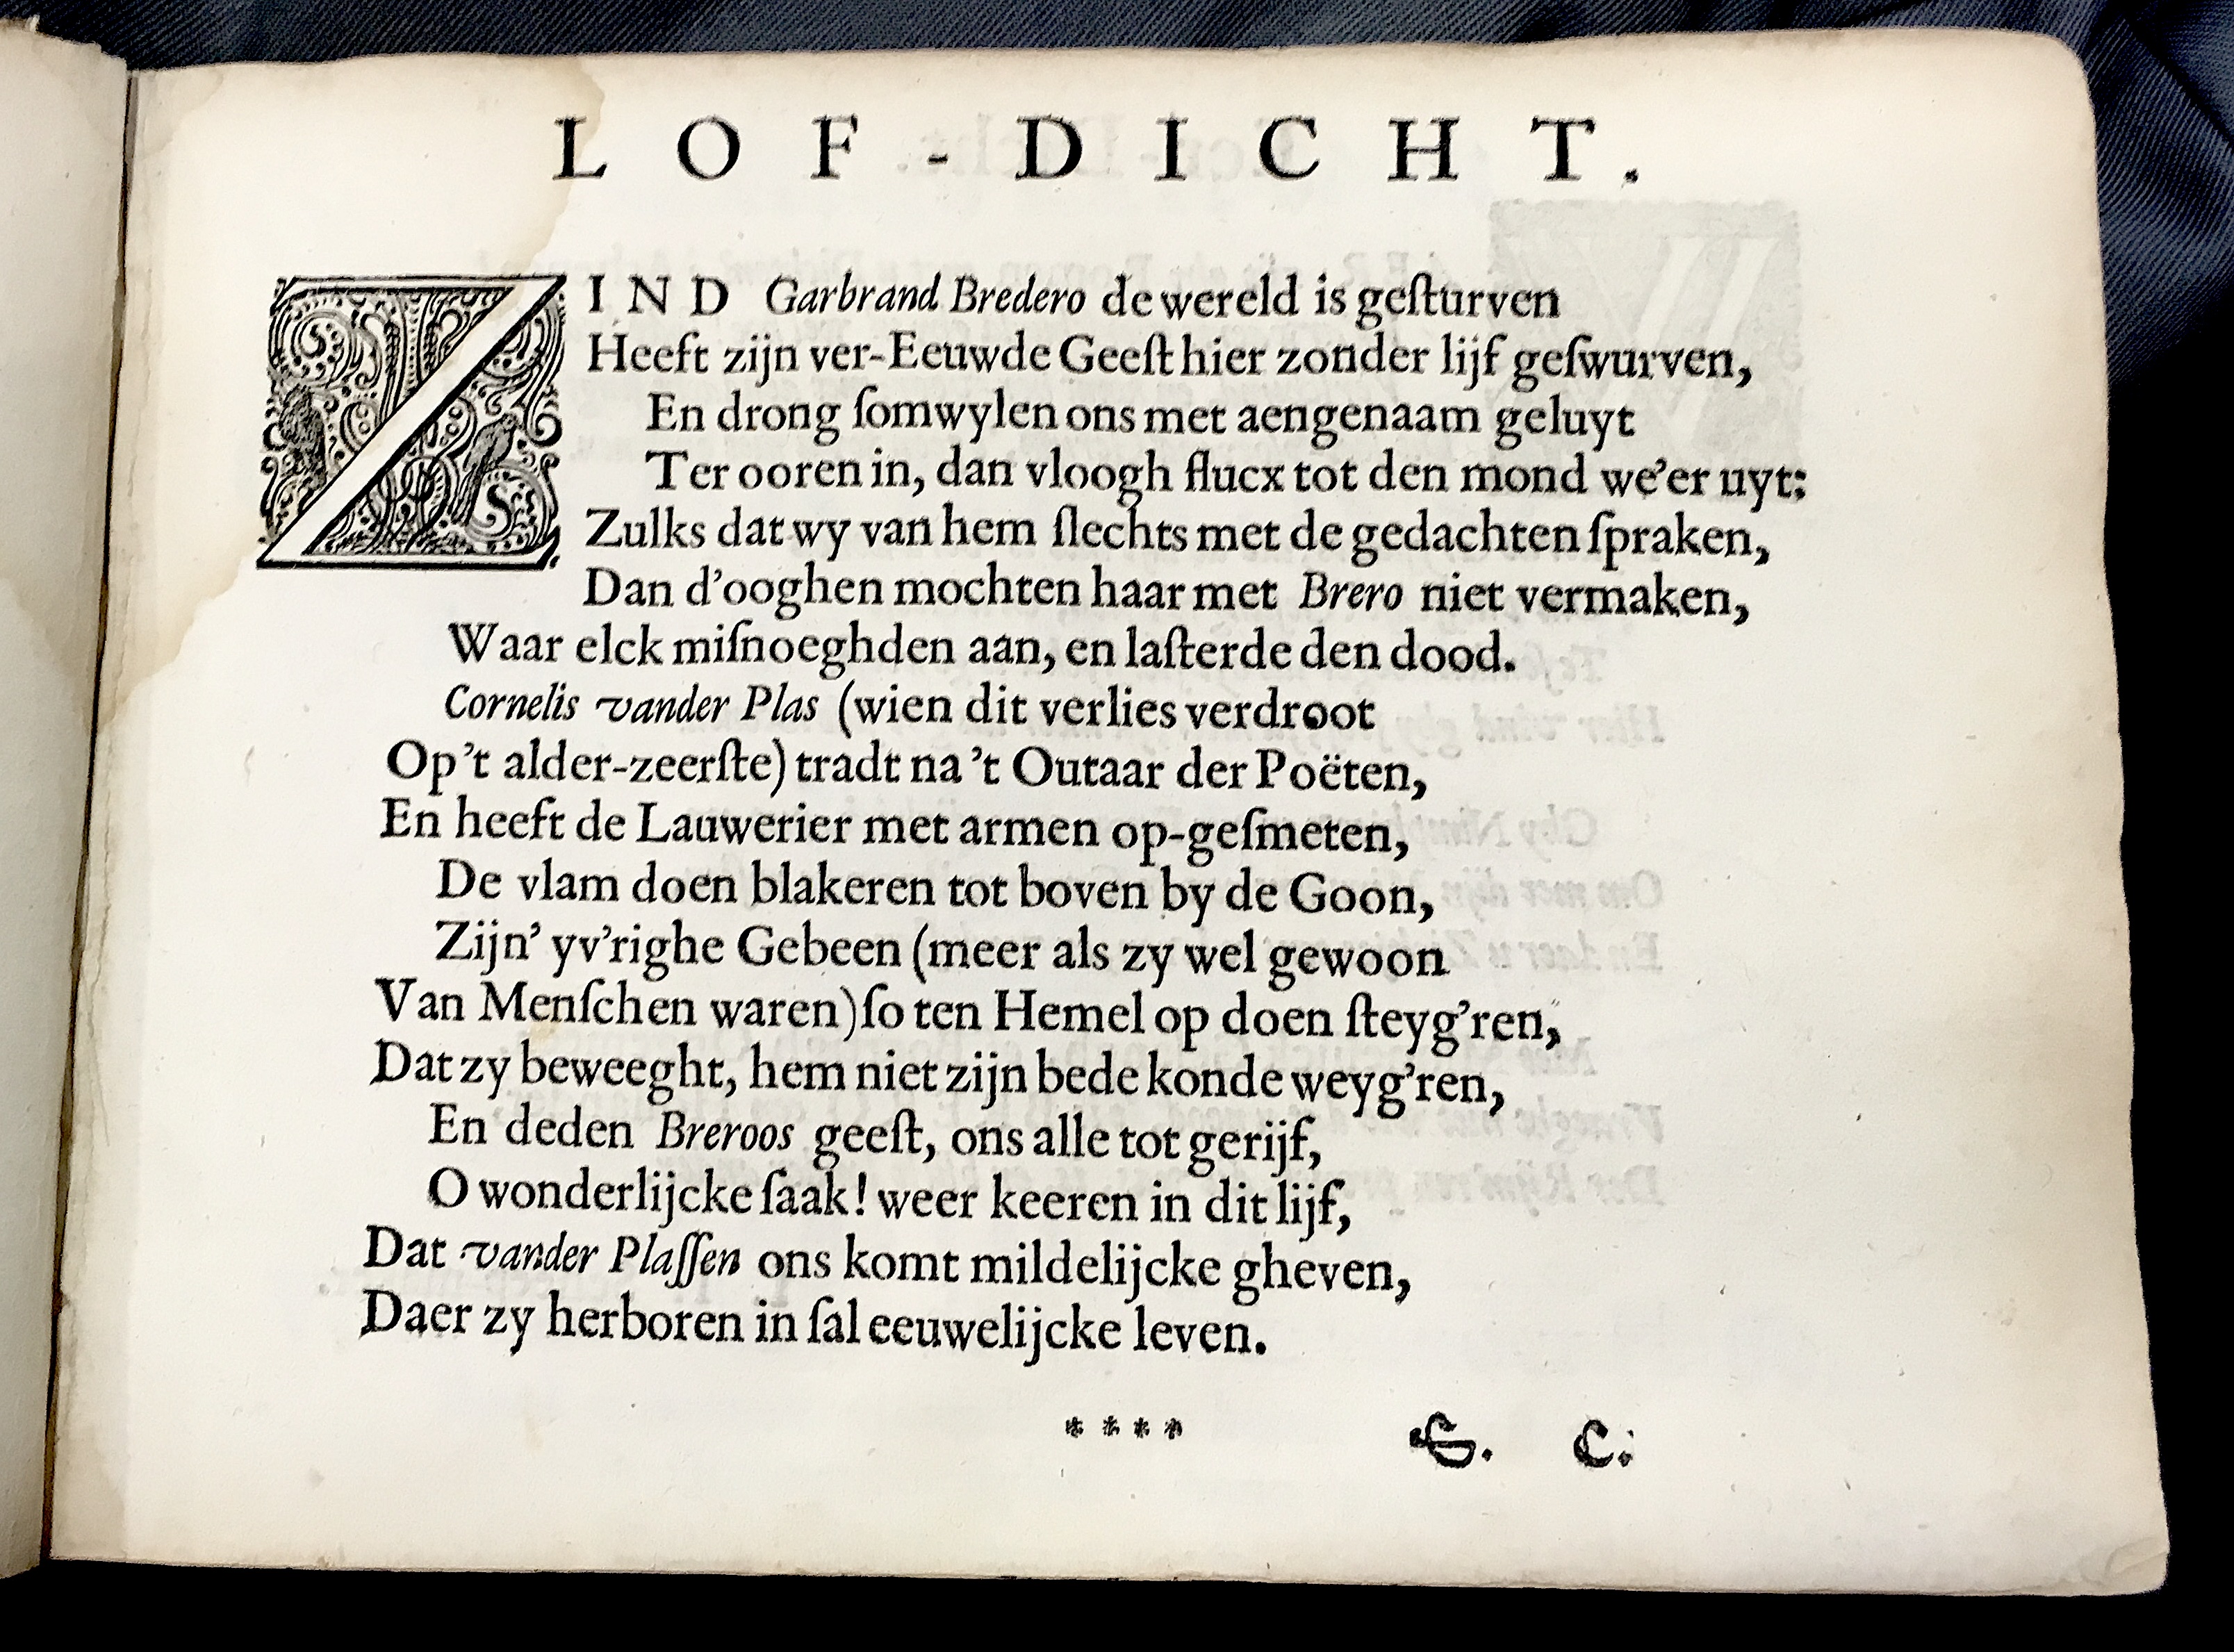 LOF-DICHT.
ZIND Garbrand Bredero de wereld is geſturven
Heeft zijn ver-Eeuwde Geeſt hier zonder lijf geſwurven,
En drong ſomwylen ons met aengenaam geluyt
Ter ooren in, dan vloogh flucx tot den mond we'er uyt:
Zulks dat wy van hem ſlechts met de gedachten ſpraken,
Dan d'ooghen mochten haar met Brero niet vermaken,
Waar elck miſnoeghden aan, en laſterde den dood.
Cornelis vander Plas (wien dit verlies verdroot
Op 't alder-zeerſte) tradt na 't Outaar der Poëten,
En heeft de Lauwerier met armen op-geſmeten,
De vlam doen blakeren tot boven by de Goon,
Zijn' yv'righe Gebeen (meer als zy wel gewoon
Van Menſchen waren) ſo ten Hemel op doen ſteyg'ren,
Dat zy beweeght, hem niet zijn bede konde weyg'ren,
En deden Breroos geeſt, ons alle tot gerijf,
O wonderlijcke ſaak! weer keeren in dit lijf,
Dat vander Plaſſen ons komt mildelijcke gheven,
Daer zy herboren in ſal eeuwelijcke leven.
**** G. C.